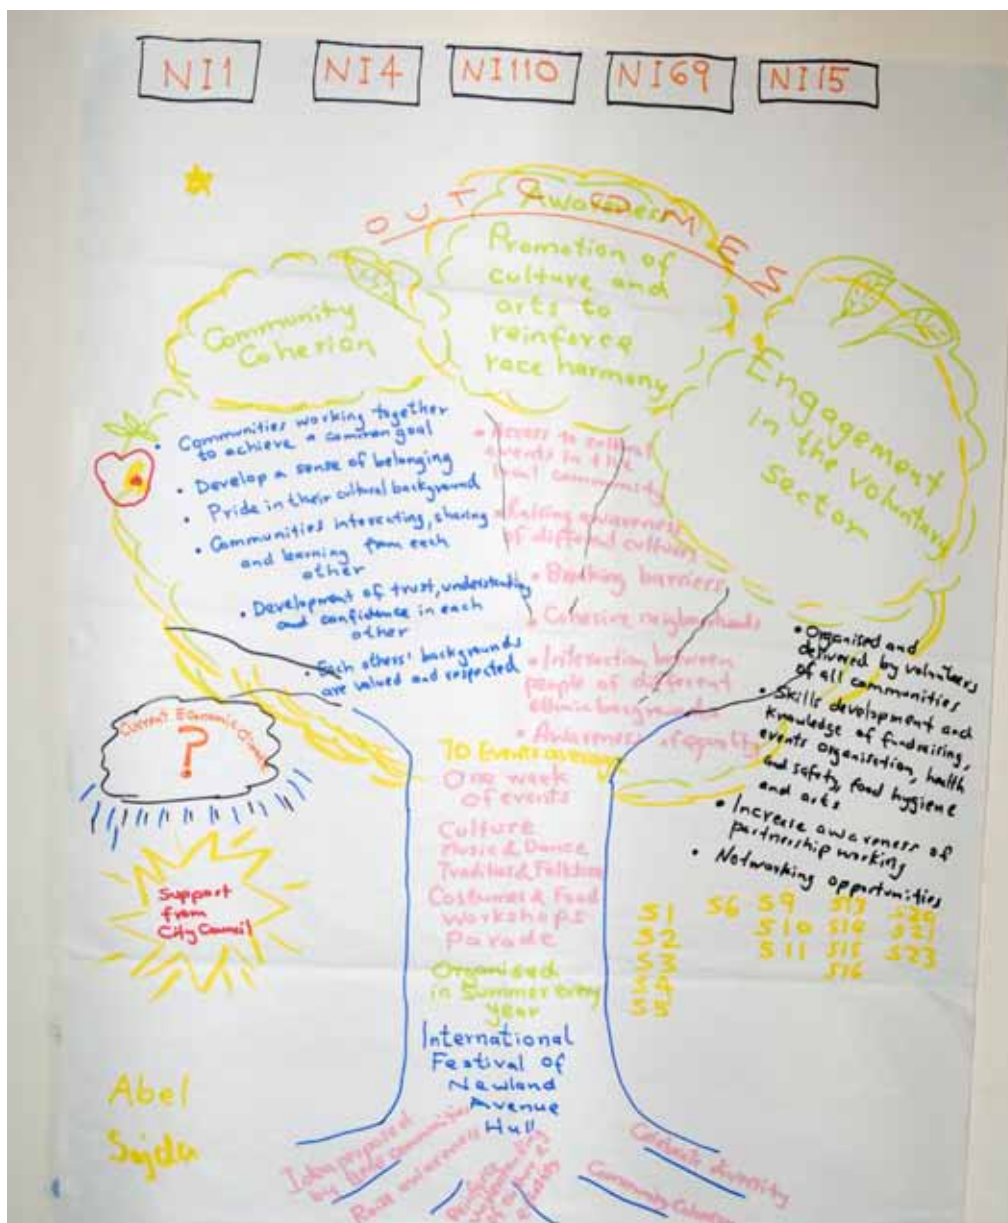 NI1
NI4
NI110
NI69
NI15
OUTCOMES
Awareness
Promotion of
culture and
arts to
reinforce
race harmony
Community
Cohesion
Engagement
in the voluntary
sector
• Communities working together
to achieve a common goal
• Develop a sense of belonging
• Pride in their cultural background
• Communities interacting, sharing
and learning from each
other
• Development of trust, understanding
and confidence in each
other
• Each others' backgrounds
are valued and respected
• Access to cultural
events in the
local community
• Raising awareness
of different cultures
• Breaking barriers
• Cohesive
• Interaction between
people of different
ethnic backgrounds
• Awareness of equality
• Organised and
delivered by volunteers
of all communities
• Skills development and
knowledge of fundraising,
events organisation, health
and safety, food hygiene
and arts
• Increase awareness of
partnership working
• Networking opportunities
Current Economic Climate
?
Support
from
City Council
Events
One week
of events
Culture
Music & Dance
Costumes & Food
Workshops
Parade
Organised
in Summer every
year
International
Festival of
Newland
Avenue
Hull
S1 S6 S9 S13 S20
S2 S10 S14 S21
S3 S11 S15 S23
S4 S16
S5
Abel
Sajda
Idea proposed
by communities
Race awareness
Celebrate diversity
Community Cohesion